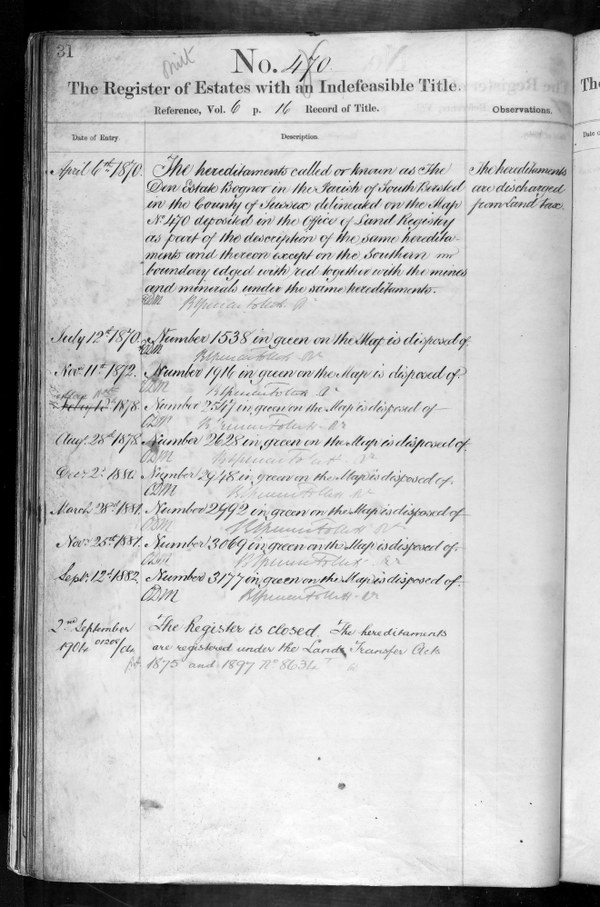 31
No. 470
The Register of Estates with an Indefeasible Title.
Reference, Vol. 6 p. 16 Record of Title.
Observations.
Date of Entry.
Description.
April 6th 1870.
The hereditaments called or known as The
Den Estate Bognor in the Parish of South Bersted
in the County of Sussex delineated on the Map
No 470 deposited in the Office of Land Registry
as part of the description of the same heredita-
ments and thereon except on the Southern
boundary edged with red together with the mines
and minerals under the same hereditaments.
The hereditaments
are discharged
from Land tax.
July 12th 1870. Number 1538 in green on the Map is disposed of
Novr 11th 1872. Number 1916 in green on the Map is disposed of.
1878. Number 2547 in green on the Map is disposed of
Augt 28th 1878. Number 2628 in green on the Map is disposed of
Decr 2d 1880. Number 2948 in green on the Map is disposed of
March 28th 1881. Number 2992 in green on the Map is disposed of
Novr 25th 1881. Number 3069 in green on the Map is disposed of
Septr 12th 1882. Number 3177 in green on the Map is disposed of
2nd September
1904
The Register is closed. The hereditaments
are registered under the Land Transfer Acts
1875 and 1897 No 86314
The
Date of